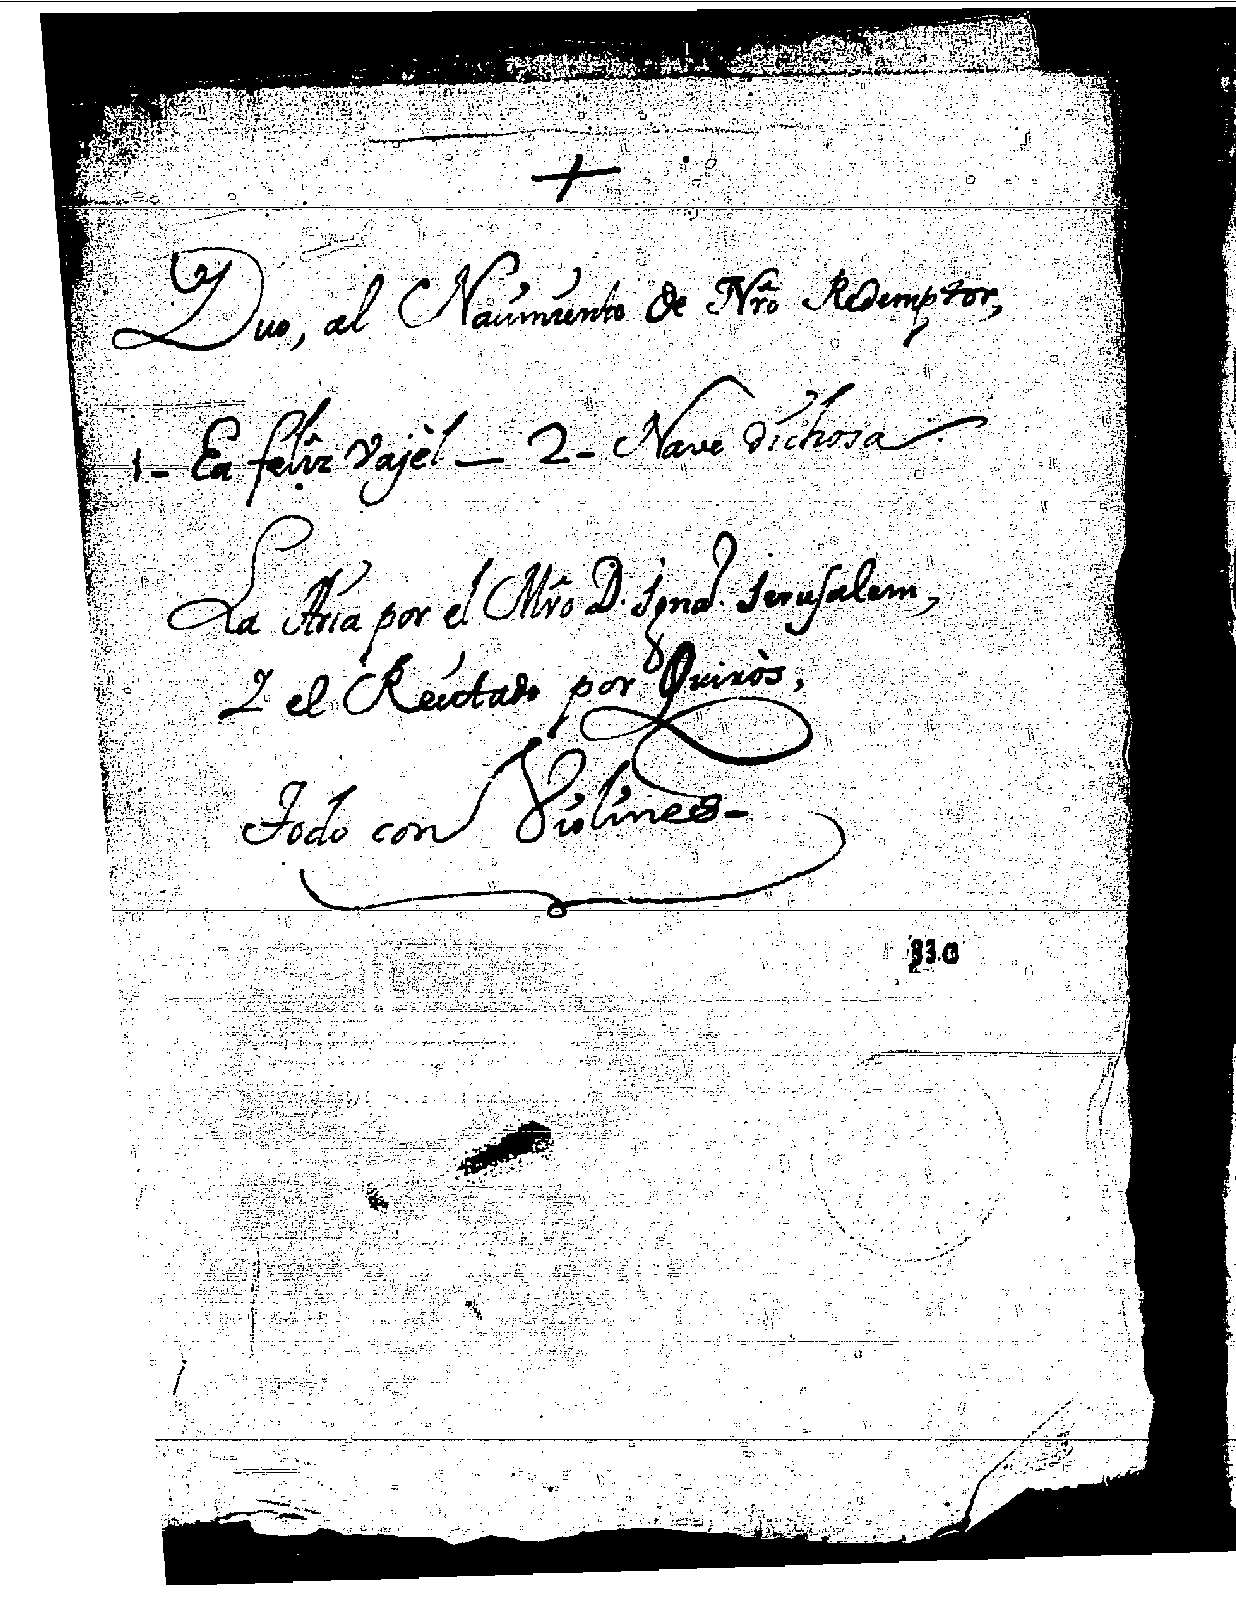 +
Duo, al Nacimiento de Nrõ Redemptor,
1- Ea felix vajèl — 2- Nave dichosa
La Aria por el Mrõ D. Ignã. Jerusalem,
Y el Recitado por Quiròs,
Todo con Violines-